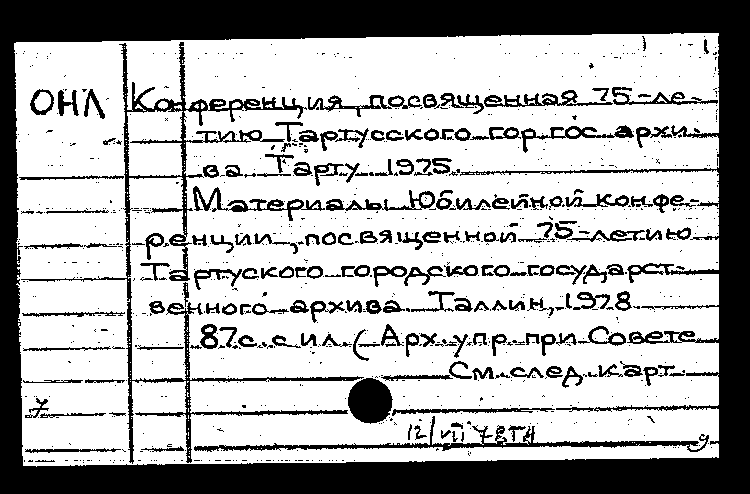 ОНЛ Конференция, посвященная 75-ле-
тию Тартусского гор. гос. архи-
ва Тарту 1975.
Материалы Юбилейной конфе-
ренции, посвященной 75-летию
Тартуского городского государст-
венного архива. Таллин, 1978
87с. с ил. ( Арх. упр. при Совете
См. след. карт.
12/VII 78